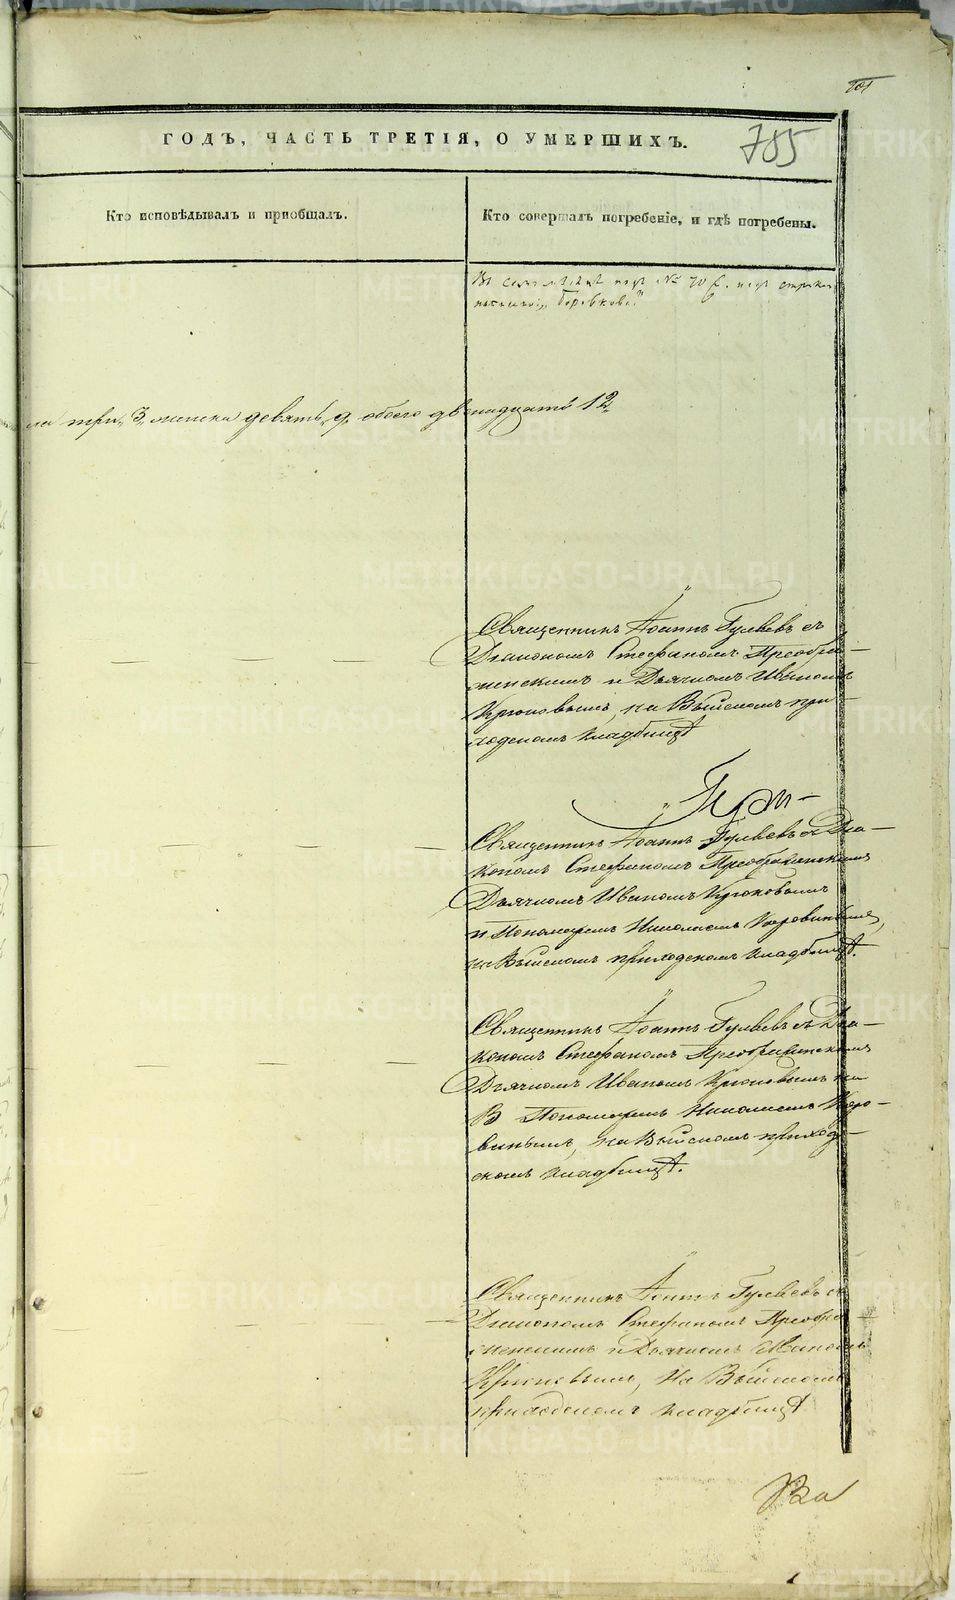 ГОДЪ, ЧАСТЬ ТРЕТІЯ, О УМЕРШИХЪ.
785
Кто исповѣдывалъ и пріобщалъ.
Кто совершалъ погребеніе, и гдѣ погребены.
подъ № 70
три, 3, женска девять, 9, обоего двѣнадцать 12
Священникъ Іоаннъ Гуляевъ съ
Діакономъ Стефаномъ Преобра-
женскимъ и Дьячкомъ Иваномъ
Крюковымъ, на Выйскомъ при-
ходскомъ кладбищѣ
Священникъ Іоаннъ Гуляевъ съ Діа-
кономъ Стефаномъ Преображенскимъ
Дьячкомъ Иваномъ Крюковымъ
и Пономаремъ Николаемъ Коровинымъ,
на Выйскомъ приходскомъ кладбищѣ.
Священникъ Іоаннъ Гуляевъ съ Діа-
кономъ Стефаномъ Преображенскимъ
Дьячкомъ Иваномъ Крюковымъ на
В Пономаремъ Николаемъ Коро-
винымъ, на Выйскомъ приход-
скомъ кладбищѣ.
Священникъ Іоаннъ Гуляевъ съ
Діакономъ Стефаномъ Преобра-
женскимъ и Дьячкомъ Иваномъ
Крюковымъ, на Выйскомъ
приходскомъ кладбищѣ
METRIKI.GASO-URAL.RU